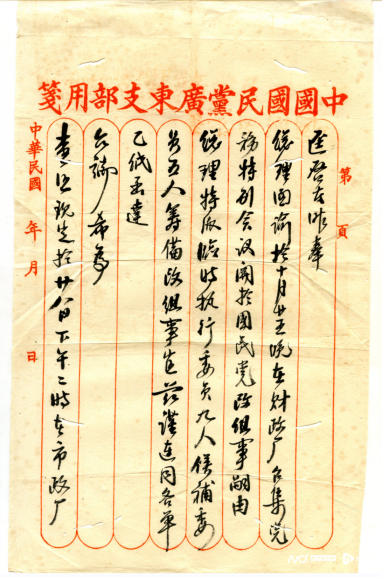 中國國民黨廣東支部用箋
第 頁
逕啓者昨奉
總理面諭於十月廿五晚在財政厅召集党
務特別会议關於國民党改組事嗣由
總理特派臨時执行委员九人候補委
员五人筹備改組事宜茲謹連同各單
乙纸函達
台端希為
查 现定於廿八日下午二時在市政厅
中華民國 年 月 日